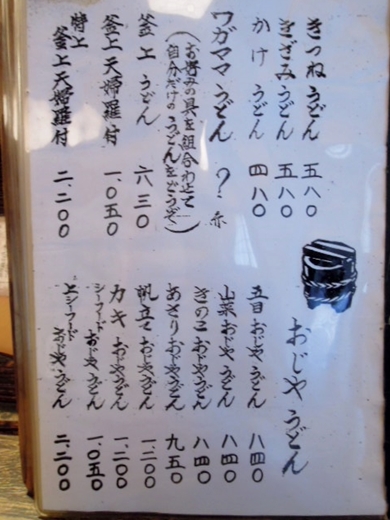 きつねうどん 五八〇
きざみうどん 五八〇
かけうどん 四八〇
ワガママうどん ?
(お好みの具を組合わせて
自分だけのうどんをどうぞ)
釜上うどん 六三〇
釜上天婦羅付 一、〇五〇
特上
釜上天婦羅付 二、二〇〇
おじやうどん
五目おじやうどん 八四〇
山菜おじやうどん 八四〇
きのこおじやうどん 八四〇
あさりおじやうどん 九五〇
帆立ておじやうどん 一、二〇〇
カキおじやうどん 一、二〇〇
シーフードおじやうどん 一、〇五〇
上シーフードおじやうどん 二、二〇〇